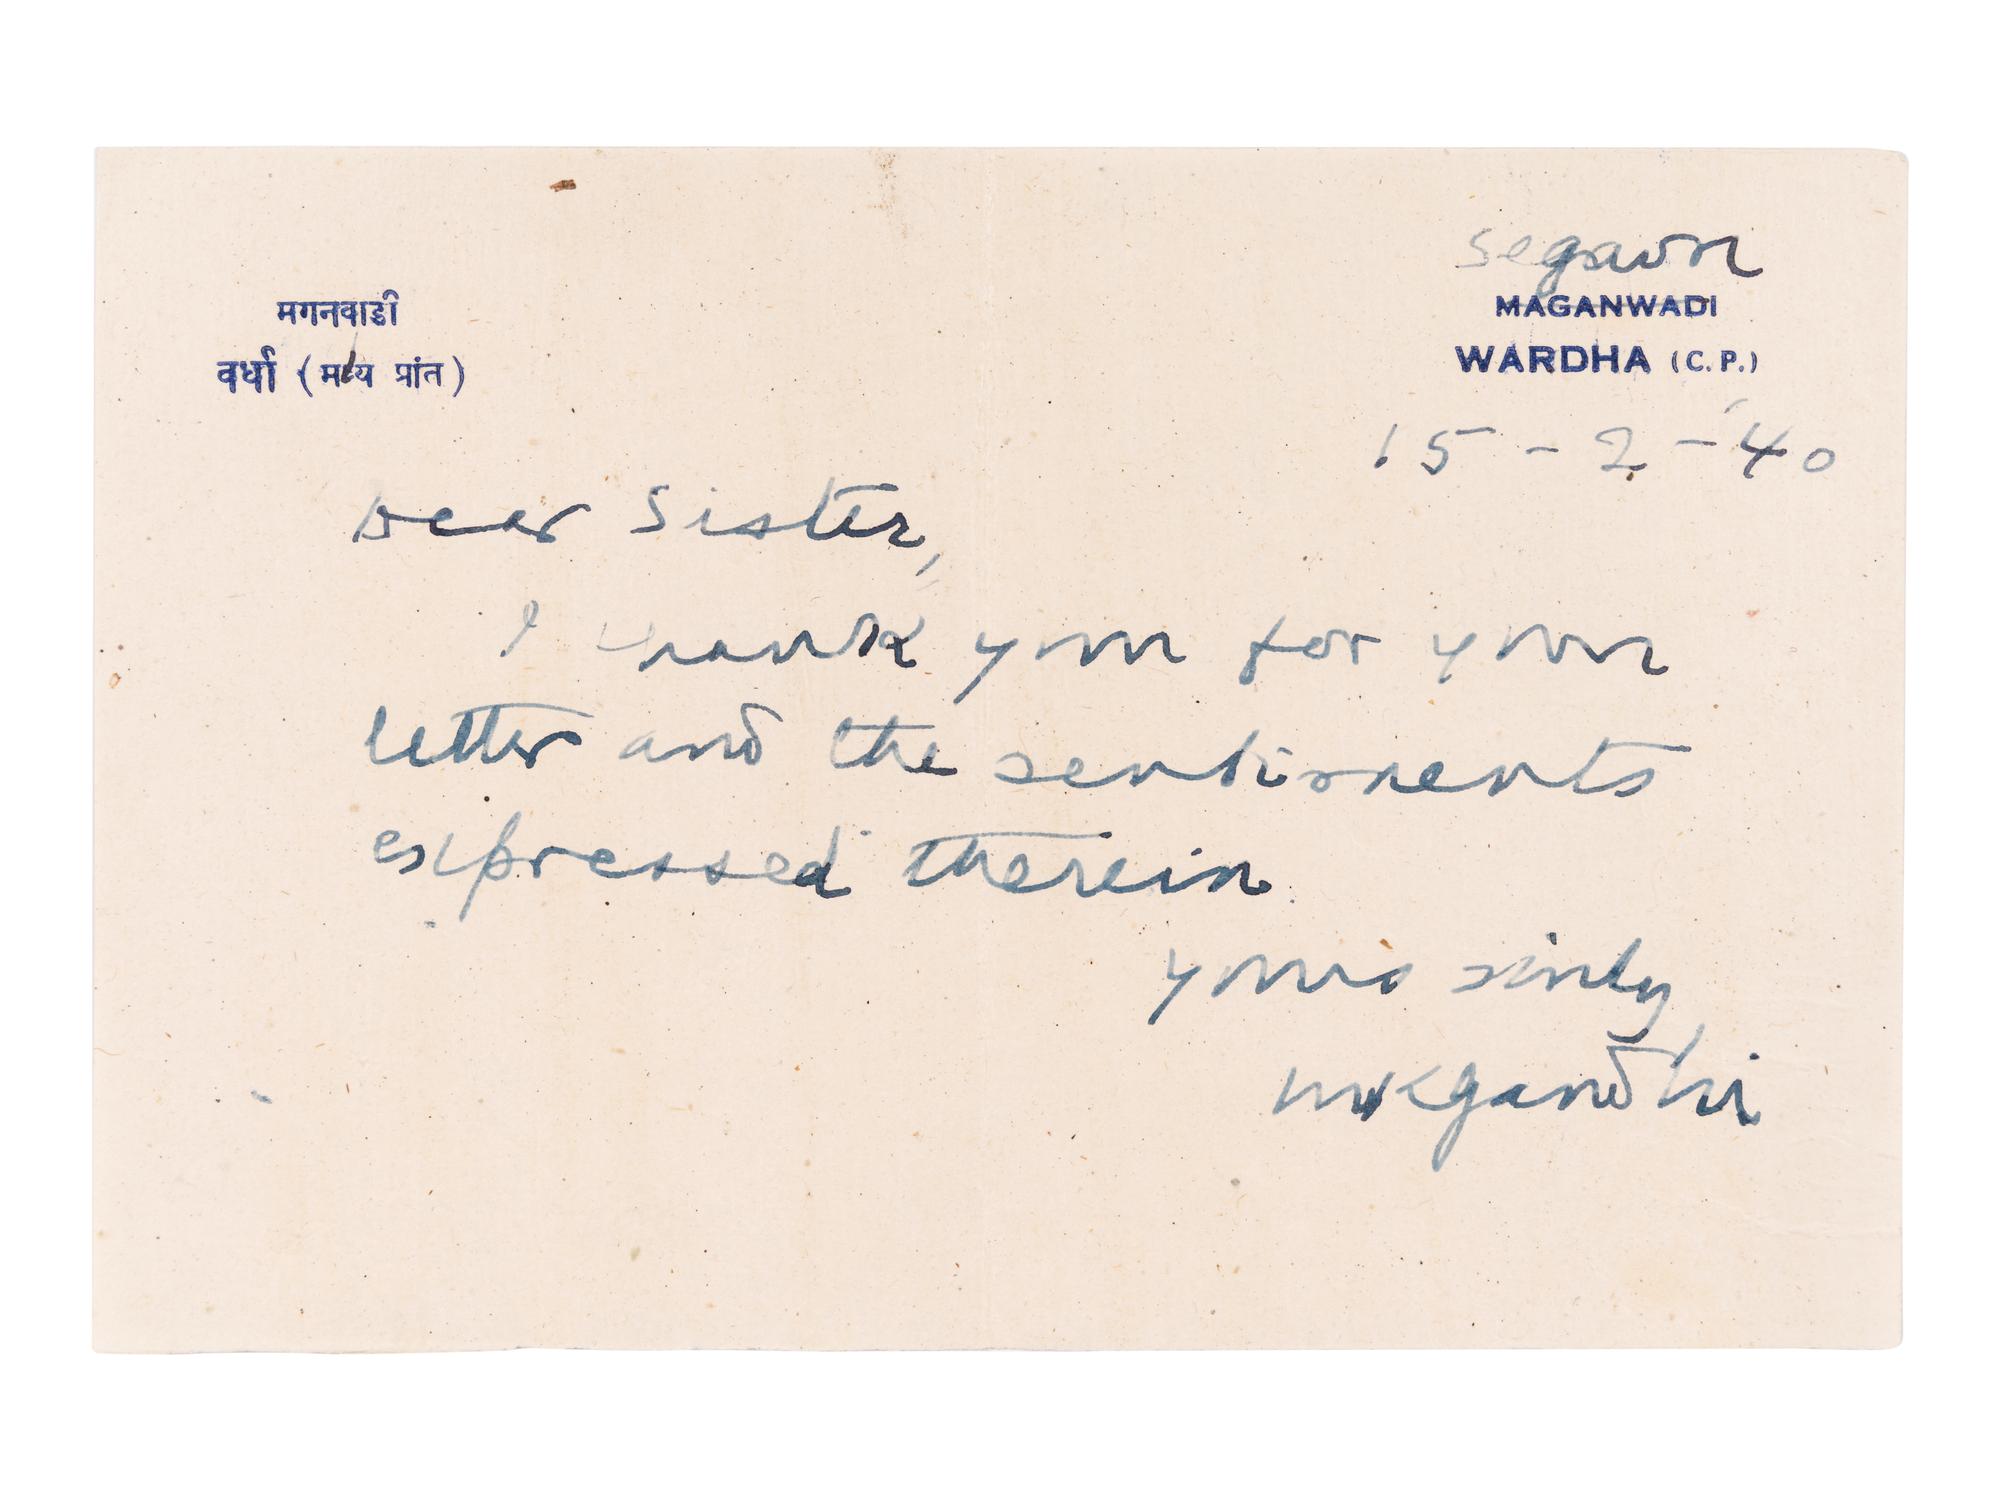 segaon
मगनवाडी
MAGANWADI
वर्धा (मध्य प्रांत)
WARDHA (C.P.)
15-2-40
Dear Sister,
I thank you for your
letter and the sentiments
expressed therein.
yours sinly
mkgandhi